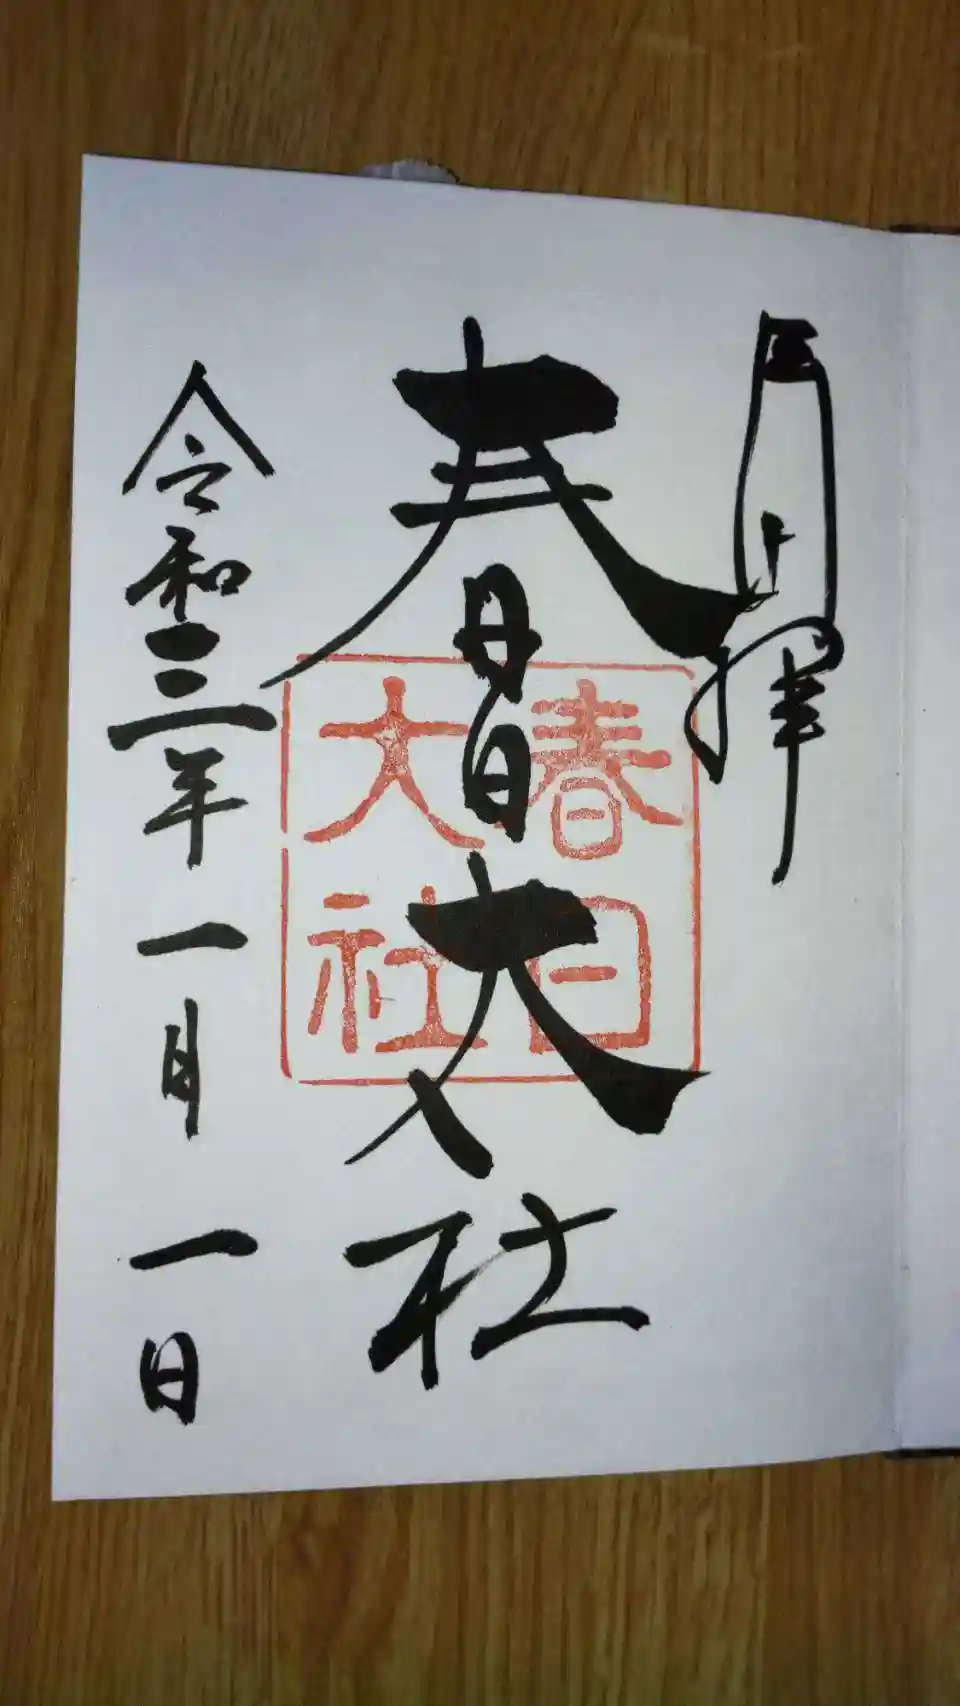 拝
春日大社
春日
大社
令和三年一月一日